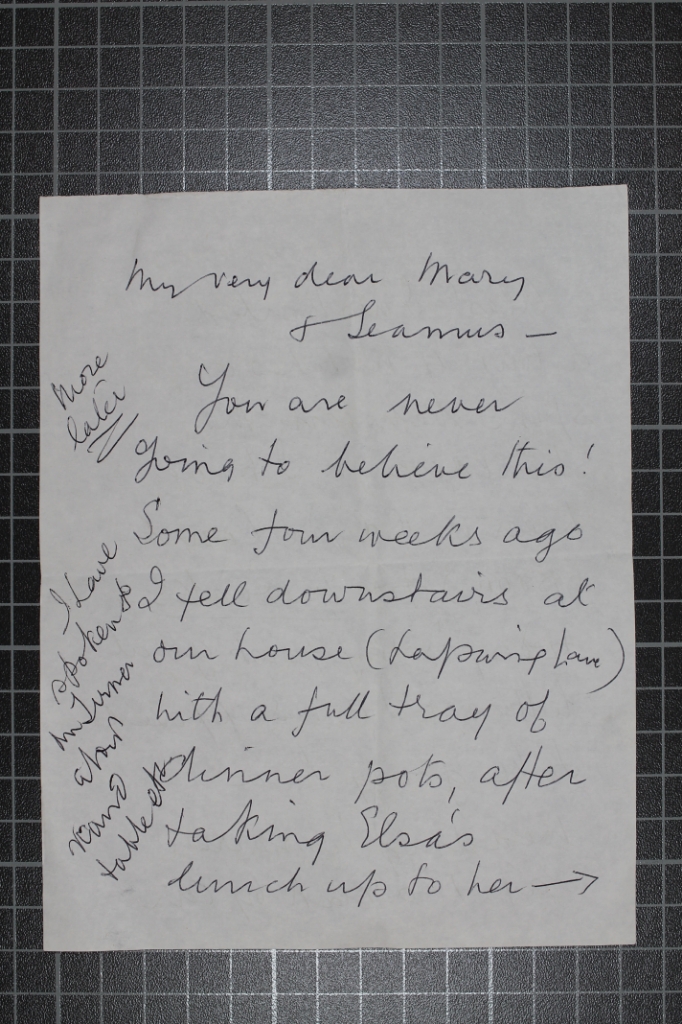 My very dear Mary
& Seamus —
You are never
going to believe this!
Some four weeks ago
I fell downstairs at
our house (Lapwing Lane)
with a full tray of
dinner pots, after
taking Elsa's
lunch up to her →
More
later
I have
spoken to
Mr Turner
about
piano
table etc